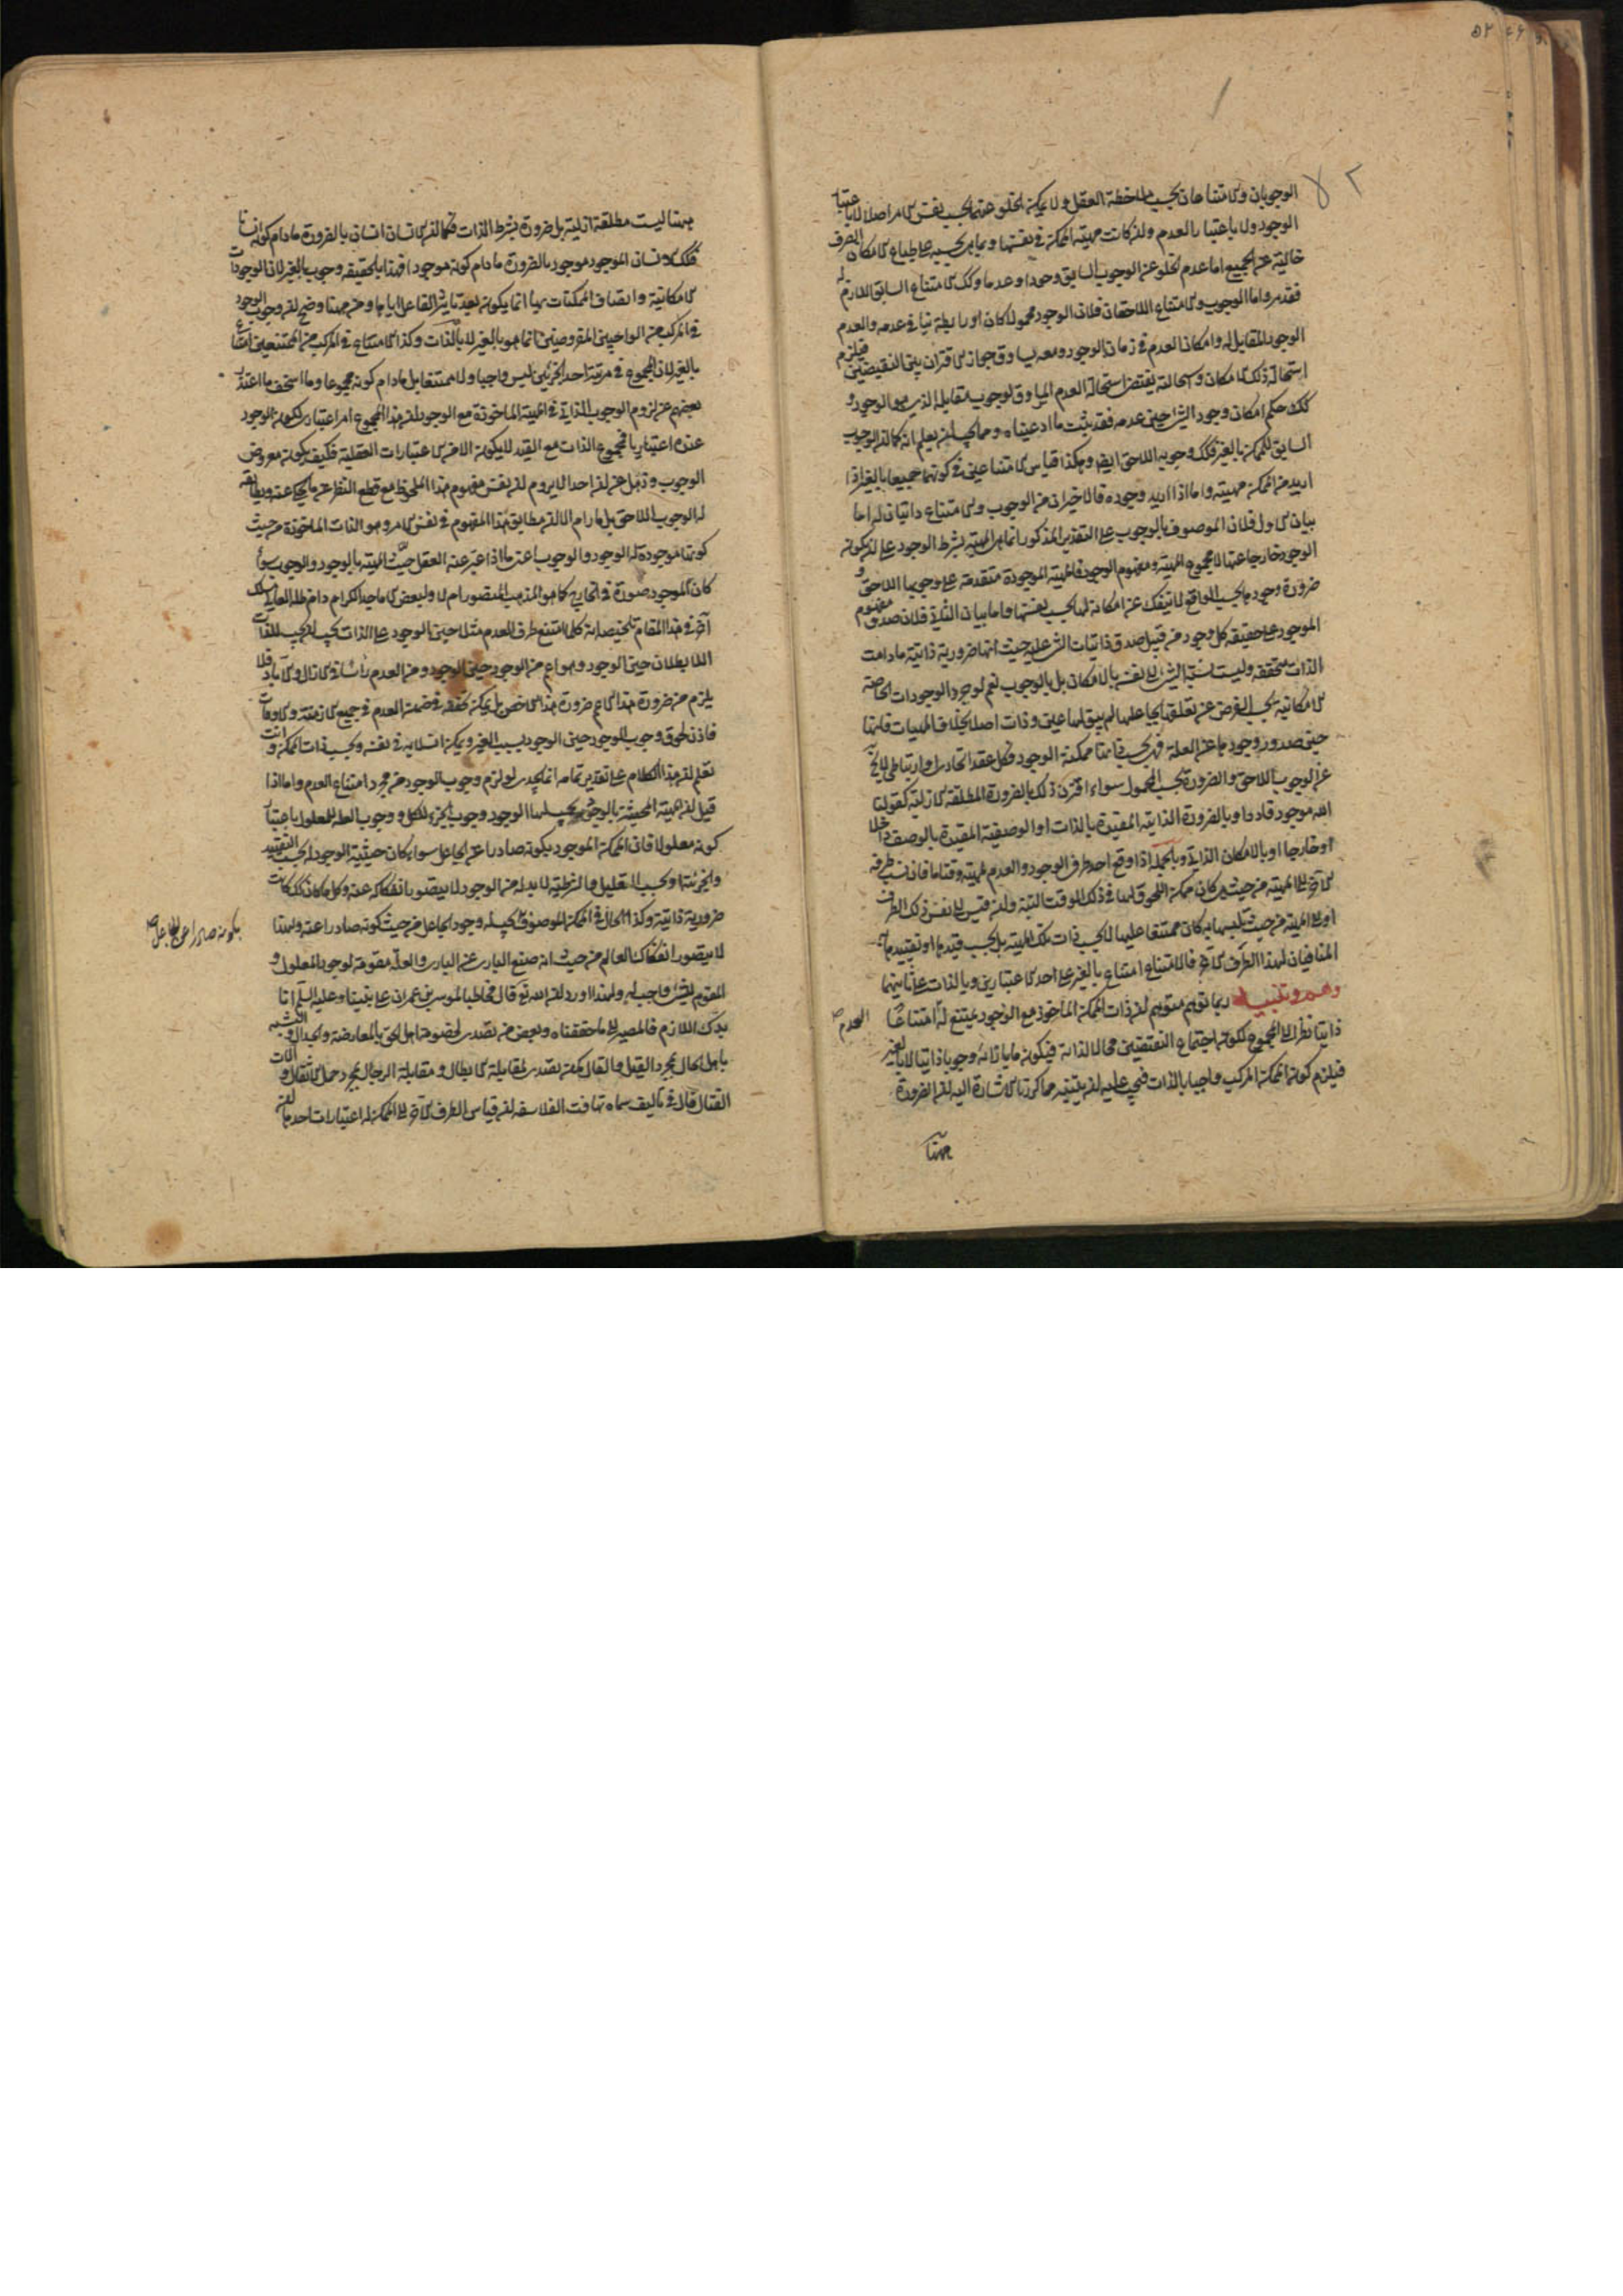 الوجوبان والامتناعان بحسب ملاحظة العقل ولا يمكن الخلو عنهما بحسب نفس الامر اصلا لا باعتبار
الوجود ولا باعتبار العدم وان كانت مهية الممكن في نفسها وبما هي بحسب طباع الامكان الصرف
خالية عن الجميع اما عدم الخلو عن الوجوب السابق وجودا وعدما وكك الامتناع السابق اللازم له
فقد مر واما الوجوب والامتناع اللاحقان فلان الوجود محمولا كان او رابطة ينافي عدمه والعدم
الوجود المقابل له وامكان العدم في زمان الوجود ومعه يساوق جواز الاقتران بين النقيضين فيلزم
استحالة ذلك الامكان واستحالته يقتضي استحالة العدم المساوق لوجوب مقابله الذي هو الوجود و
كك حكم امكان وجود الشئ حين عدمه فقد ثبت ما ادعيناه ومما يجب ان يعلم انه كما ان الوجوب
السابق للممكن بالغير فكك وجوبه اللاحق ايضا وهكذا قياس الامتناعين في كونهما جميعا بالغير اذا
اريد من الممكن مهيته واما اذا اريد وجوده فالاخيران من الوجوب والامتناع ذاتيان له اما
بيان الاول فلان الموصوف بالوجوب على التقدير المذكور انما هي المهية بشرط الوجود على ان يكون
الوجود خارجا عنها لا مجموع المهية ومفهوم الوجود فالمهية الموجودة متقدمة على وجوبها اللاحق و
ضرورة وجودها بحسب الواقع لا ينفك عن امكانه لها بحسب نفسها واما بيان الثاني فلان صدق مفهوم
الموجود على حقيقة كل وجود من قبيل صدق ذاتيات الشئ عليه حيث انها ضرورية ذاتية ما دامت
الذات متحققة وليست نسبة الشئ الى نفسه بالامكان بل بالوجوب نعم لو جرد الوجودات الخاصة
الامكانية بحسب الفرض عن تعلقها بجاعلها لم يبق لها عين وذات اصلا بخلاف المهيات فانها
حين صدور وجودها عن العلة فهي بحسب ذاتها ممكنة الوجود فكل عقد اتحادي او ارتباطي لا يخ
عن الوجوب اللاحق والضرورة بحسب المحمول سواء اقترن ذلك بالضرورة المطلقة الازلية كقولنا
الله موجود قادر او بالضرورة الذاتية المقيدة بالذات او الوصفية المقيدة بالوصف داخلا
او خارجا او بالامكان الذاتي وبالجملة اذا وقع احد طرفي الوجود والعدم لمهية وقتا ما فان نسب طرفه
الاخر الى المهية من حيث هي كان ممكن اللحوق لها في ذلك الوقت البتة وان قيس الى نفس ذلك الطرف
او الى المهية من حيث تلبسها به كان ممتنعا عليها لا بحسب ذات تلك المهية بل بحسب قيدها او تقييدها
المنافيان لهذا الطرف الاخر فالامتناع امتناع بالغير على احد الاعتبارين وبالذات على ثانيهما
وهم وتنبيه ربما توهم متوهم ان ذات الممكن المأخوذ مع الوجود يمتنع له العدم امتناعا
ذاتيا نظرا الى المجموع لكونه اجتماع النقيضين محالا لذاته فيكون ما بازائه وجوبا ذاتيا لا بالغير
فيلزم كون الممكن المركب واجبا بالذات فيجب عليه ان يتنبه مما كررنا الاشارة اليه ان الضرورة
ههنا
ههنا ليست مطلقة ازلية بل ضرورة بشرط الذات فكما ان الانسان انسان بالضرورة ما دام كونه انسانا
فكك الانسان الموجود موجود بالضرورة ما دام كونه موجودا فهذا بالحقيقة وجوب بالغير لان الوجودات
الامكانية واتصاف الممكنات بها انما يكون بعد تأثير الفاعل اياها ومن ههنا وضح ان وجوب الوجود
في المركب من الواجبين المفروضين انما هو بالغير لا بالذات وكذا الامتناع في المركب من الممتنعين امتناع
بالغير لان المجموع في مرتبة احد الجزئين ليس واجبا ولا ممتنعا بل ما دام كونه مجموعا وما استخف ما اعتذر
بعضهم عن لزوم الوجوب الذاتي في المهية الماخوذة مع الوجود ان هذا المجموع امر اعتباري لكون الوجود
عنده اعتباريا فمجموع الذات مع القيد لا يكون الا من الاعتبارات العقلية فكيف يكون معروض
الوجوب وذهل عن ان احدا لا يروم ان نفس مفهوم هذا الملحوظ مع قطع النظر عما يحكي عنه ويطابقه
له الوجوب اللاحق بل ما رام الا ان مطابق هذا المفهوم في نفس الامر وهو الذات الماخوذة من حيث
كونها موجودة له الوجود والوجوب اعني ما اذا عبر عنه العقل حيث المهية بالوجود والوجوب سواء
كان للموجود صورة في الخارج كما هو المذهب المنصور ام لا ولبعض الاماجد الكرام دام ظله العالي مسلك
آخر في هذا المقام تلخيصه انه كلما امتنع طرف العدم مثلا حين الوجود على الذات بحسب
اللا بطلان حين الوجود وهو اعم من الوجود حين الوجود ومن العدم رأسا في الازال والاباد فلا
يلزم من ضرورة هذا الاعم ضرورة هذا الاخص بل يمكن تحققه في ضمن العدم في جميع الازمنة والاوقات
فاذن لحوق وجوب الوجود حين الوجود بسبب الغير ويمكن انسلابه في نفسه وبحسب ذات الممكن وانت
تعلم ان هذا الكلام على تقدير تمامه انما يجدي لو لزم وجوب الوجود من مجرد امتناع العدم واما اذا
قيل ان المهية المحيثة بالوجود يجب لها الوجود وجوب الجزء للكل ووجوب العلة للمعلول باعتبار
كونه معلولا فان الممكن الموجود بكونه صادرا عن الجاعل سواء كان حيثية الوجود له بحسب التقييد
والجزئية او بحسب التعليل والشرطية لا بد له من الوجود لا يتصور انفكاكه عنه وكل ما كان كك كانت
ضرورية ذاتية وكذا الحال في الممكن الموصوف بكونه صادرا عن الجاعل يجب له وجود الجاعل من حيث كونه صادرا عنه ولهذا
لا يتصور انفكاك العالم من حيث انه صنع الباري عن الباري والعلة مقومة لوجود المعلول و
المقوم للشئ واجب له ولهذا ورد ان الله تع قال مخاطبا لموسى بن عمران على نبينا وعليه السلم انا
بدك اللازم فالمصير الى ما حققناه وبعض من تصدى لخصومة اهل الحق بالمعارضة والجدال والتشبه
باهل الحال بمجرد القيل والقال كمن تصدى لمقابلة الابطال ومقابلة الرجال بمجرد حمل الاثقال والات
القتال قال في تأليف سماه تهافت الفلاسفة ان قياس الطرف الاخر الى الممكن له اعتبارات احدها ان